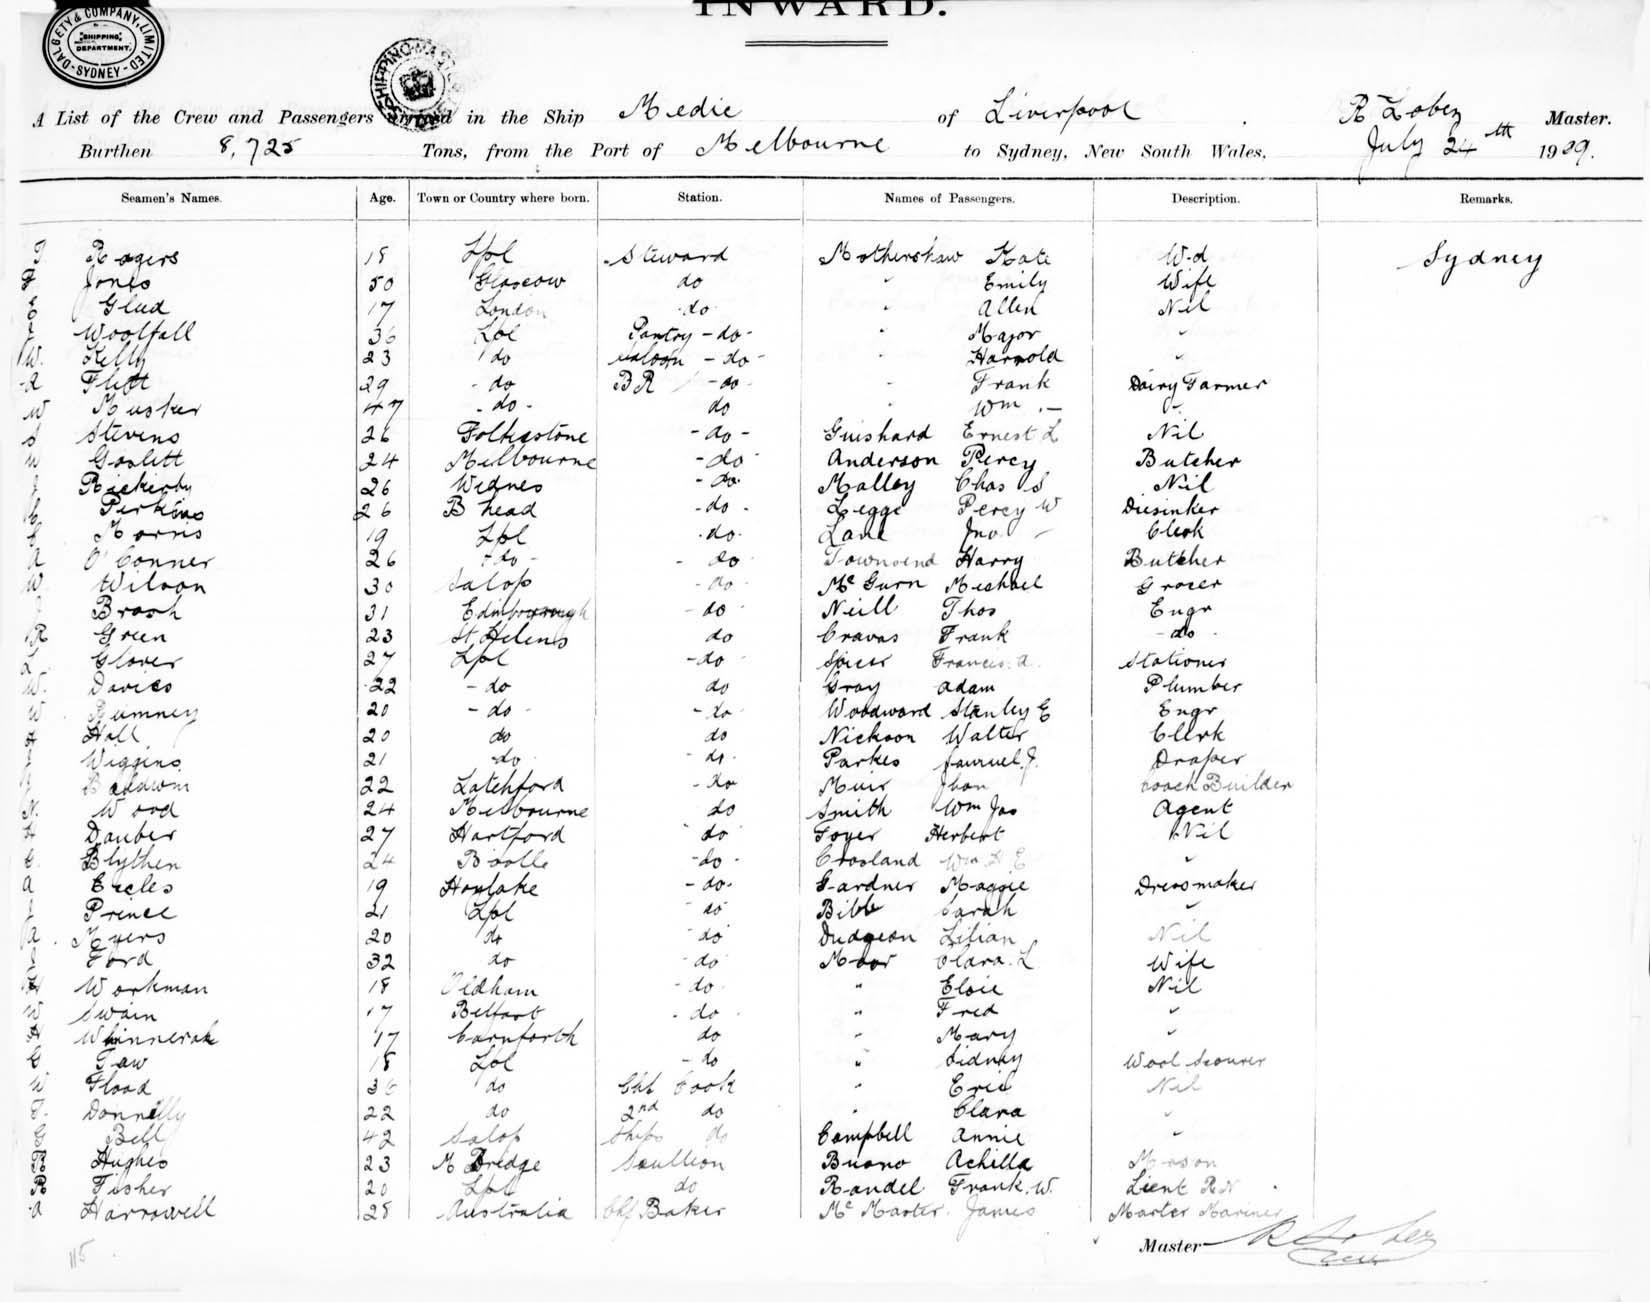 INWARD.
DALGETY & COMPANY, LIMITED SHIPPING DEPARTMENT. SYDNEY
A List of the Crew and Passengers arrived in the Ship Medic of Liverpool R Master.
Burthen 8,725 Tons, from the Port of Melbourne to Sydney, New South Wales, July 24th 1909.
Seamen's Names. Age. Town or Country where born. Station. Names of Passengers. Description. Remarks.
Rogers 18 Lpl Steward Mothershaw Kate Wd Sydney
Jones 50 Glascow do " Emily Wife
17 London do " Allen Nil
Woolfall 36 Lpl Pantry - do - " Major "
W. Kelly 23 do Saloon - do - " Harrold "
A 29 - do BR - do - " Frank Dairy Farmer
W Musker 47 - do - do " Wm "
S Stevens 26 Folkestone - do - Guishard Ernest L Nil
W Goslett 24 Melbourne - do - Anderson Percy Butcher
Rickerby 26 Widnes - do - Malley Chas S Nil
Perkins 26 B head - do - Legge Percy W Diesinker
Morris 19 Lpl - do - Lane Jno Clerk
A O'Conner 26 - do - - do Townsend Harry Butcher
W Wilson 30 Salop - do - Mc Gurn Michael Grocer
Brash 31 - do - Neill Thos Engr
R Green 23 St Helens do Cravas Frank - do -
Glover 27 Lpl - do - Spicer Francis A. Stationer
W. Davies 22 - do do Gray Adam Plumber
W Rumney 20 - do - - do - Woodward Stanley E Engr
Hall 20 do do Nickson Walter Clerk
Wiggins 21 do - do - Parkes Samuel. J. Draper
Baldwin 22 Latchford - do Muir Coach Builder
N. Wood 24 Melbourne do Smith Wm Jas Agent
Dauber 27 Hartford do Foyer Herbert Nil
Blythen 24 Bootle - do - Crosland Wm H E "
A Eccles 19 Hoylake - do - Gardner Maggie Dressmaker
Prince 21 Lpl do Bibb Sarah "
A. Myers 20 do do Dudgeon Lilian Nil
Ford 32 do do Moor Clara. L Wife
H Workman 18 Oldham - do - " Elsie Nil
W Swain 17 Belfast - do - " Fred "
H Whinnerah 17 Carnforth do " Mary "
G Taw 18 Lpl - do " Sidney Wool Scourer
W Flood 36 do Chf Cook " Eric Nil
Donnelly 22 do 2nd do " Clara "
G Bell 42 Salop Ships do Campbell Annie "
Hughes 23 M Bredge Scullion Buono Achilla Mason
R Fisher 20 Lpl do Randel Frank. W. Lieut RN
A Harrowell 28 Australia Chf Baker Mc Master James Master Mariner
115
Master